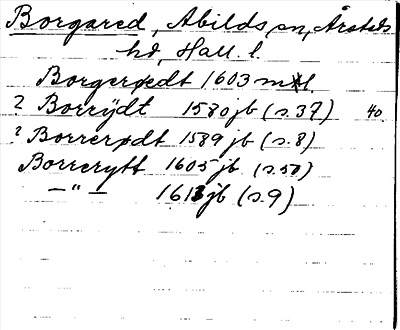 Borgared, Abilds sn, Årstads
hd, Hall. l.
Borgerødt 1603 mtl.
? Borrÿdt 1580 jb (s. 37) 40
? Borrerødt 1589 jb (s. 8)
Borrerytt 1605 jb (s. 50)
— " — 1613 jb (s. 9)